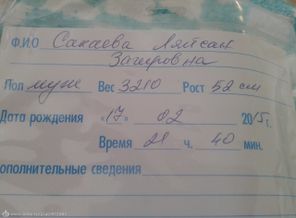 Ф.И.О Сакаева Ляйсан
Загировна
Пол муж Вес 3210 Рост 52 см
Дата рождения «17» 02 2015 г.
Время 21 ч. 40 мин.
ополнительные сведения